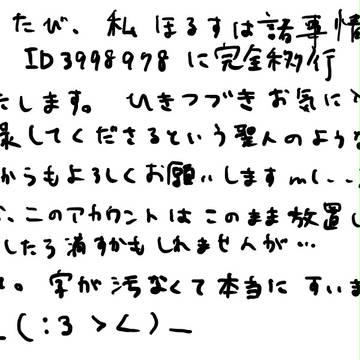 たび、私 ほるすは諸事情
ID3998978 に完全移行
たします。ひきつづきお気に
録してくださるという聖人のような
からもよろしくお願いしますm(..
、このアカウントはこのまま放置し
したら消すかもしれませんが…
。字が汚なくて本当にすいま
_(:3 ゝ<)_